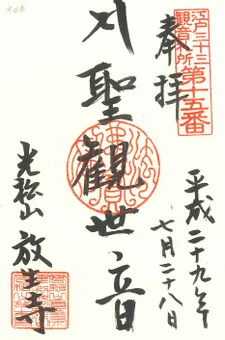 江戸三十三
観音札所
第十五番
奉拝
聖観世音
平成二十九年
七月二十八日
光松山 放生寺